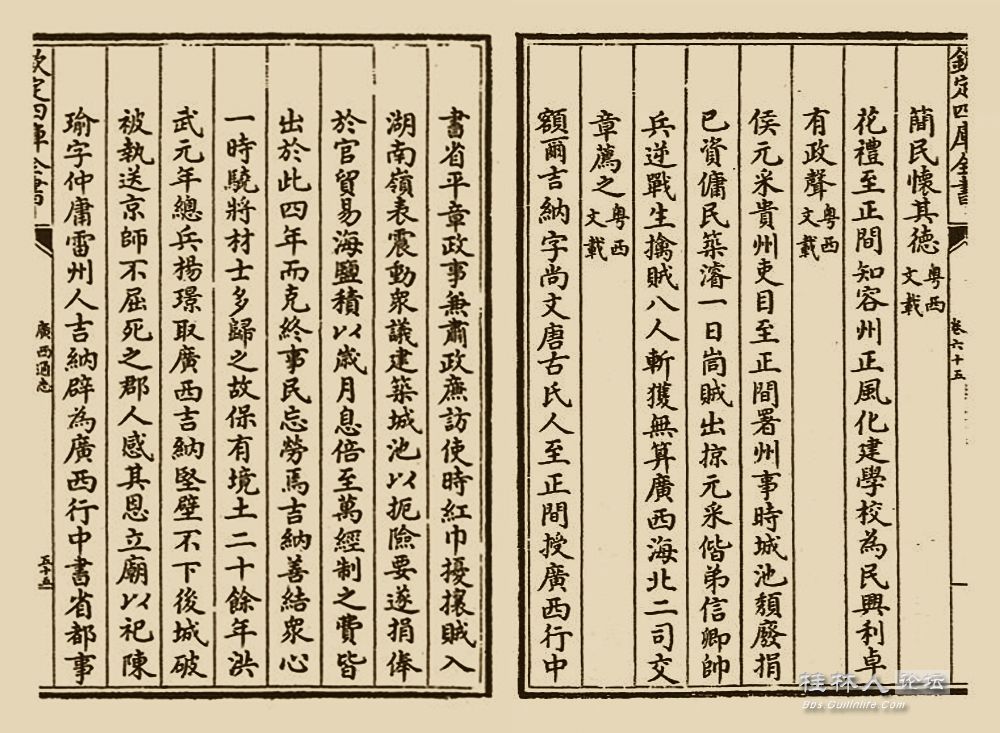 欽定四庫全書
卷六十五
簡民懷其德粵西文載
花禮至正間知容州正風化建學校為民興利卓
有政聲粵西文載
侯元采貴州吏目至正間署州事時城池頹廢捐
已資傭民築濬一日峝賊出掠元采偕弟信卿帥
兵逆戰生擒賊八人斬獲無算廣西海北二司交
章薦之粵西文載
額爾吉納字尚文唐古氏人至正間授廣西行中
書省平章政事兼肅政亷訪使時紅巾擾攘賊入
湖南嶺表震動衆議建築城池以扼險要遂捐俸
於官貿易海鹽積以歲月息倍至萬經制之費皆
出於此四年而克終事民忘勞焉吉納善結衆心
一時驍將材士多歸之故保有境土二十餘年洪
武元年總兵揚璟取廣西吉納堅壁不下後城破
被執送京師不屈死之郡人感其恩立廟以祀陳
瑜字仲庸雷州人吉納辟為廣西行中書省都事
欽定四庫全書
廣西通志
五十五
桂林人论坛
Bbs.Guilinlife.Com